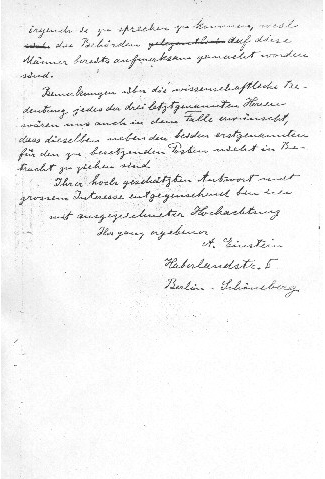 irgend so zu sprechen zu kommen, weil
die Behörden auf diese
Männer bereits aufmerksam gemacht worden
sind.
Bemerkungen über die wissenschaftliche Be-
deutung jedes der drei letztgenannten Herren
wären uns auch in dem Falle erwünscht,
dass dieselben neben den beiden erstgenannten
für den zu besetzenden Posten nicht in Be-
tracht zu ziehen sind.
Ihrer hoch geschätzten Antwort mit
grossem Interesse entgegensehend bin ich
mit ausgezeichneter Hochachtung
Ihr ganz ergebener
A. Einstein
Haberlandstr. 5
Berlin - Schöneberg